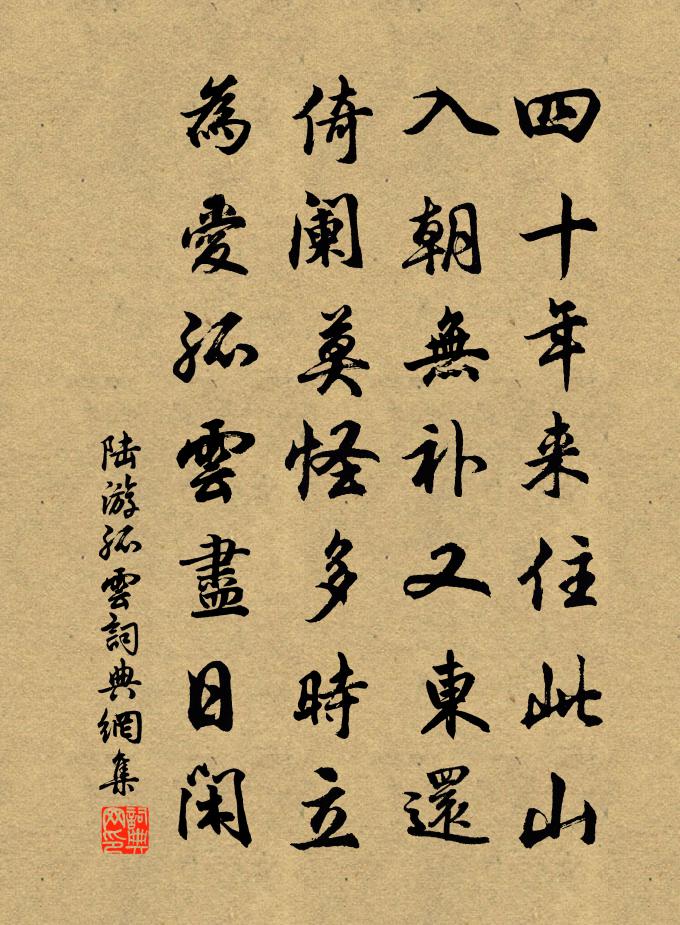 四十年来住此山
入朝無补又東還
倚阑莫怪多時立
為愛孤雲盡日闲
陆游孤雲詞典網集
詞典网印